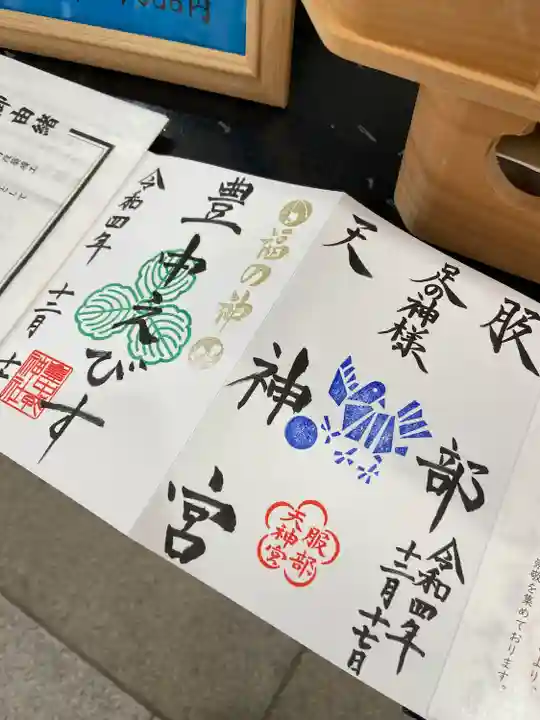 服部
天神宮
足の神様
服部
天神宮
令和四年
十二月十七日
福の神
豊中えびす
令和四年
十二月十
由緒
として
より、
崇敬を集めております。